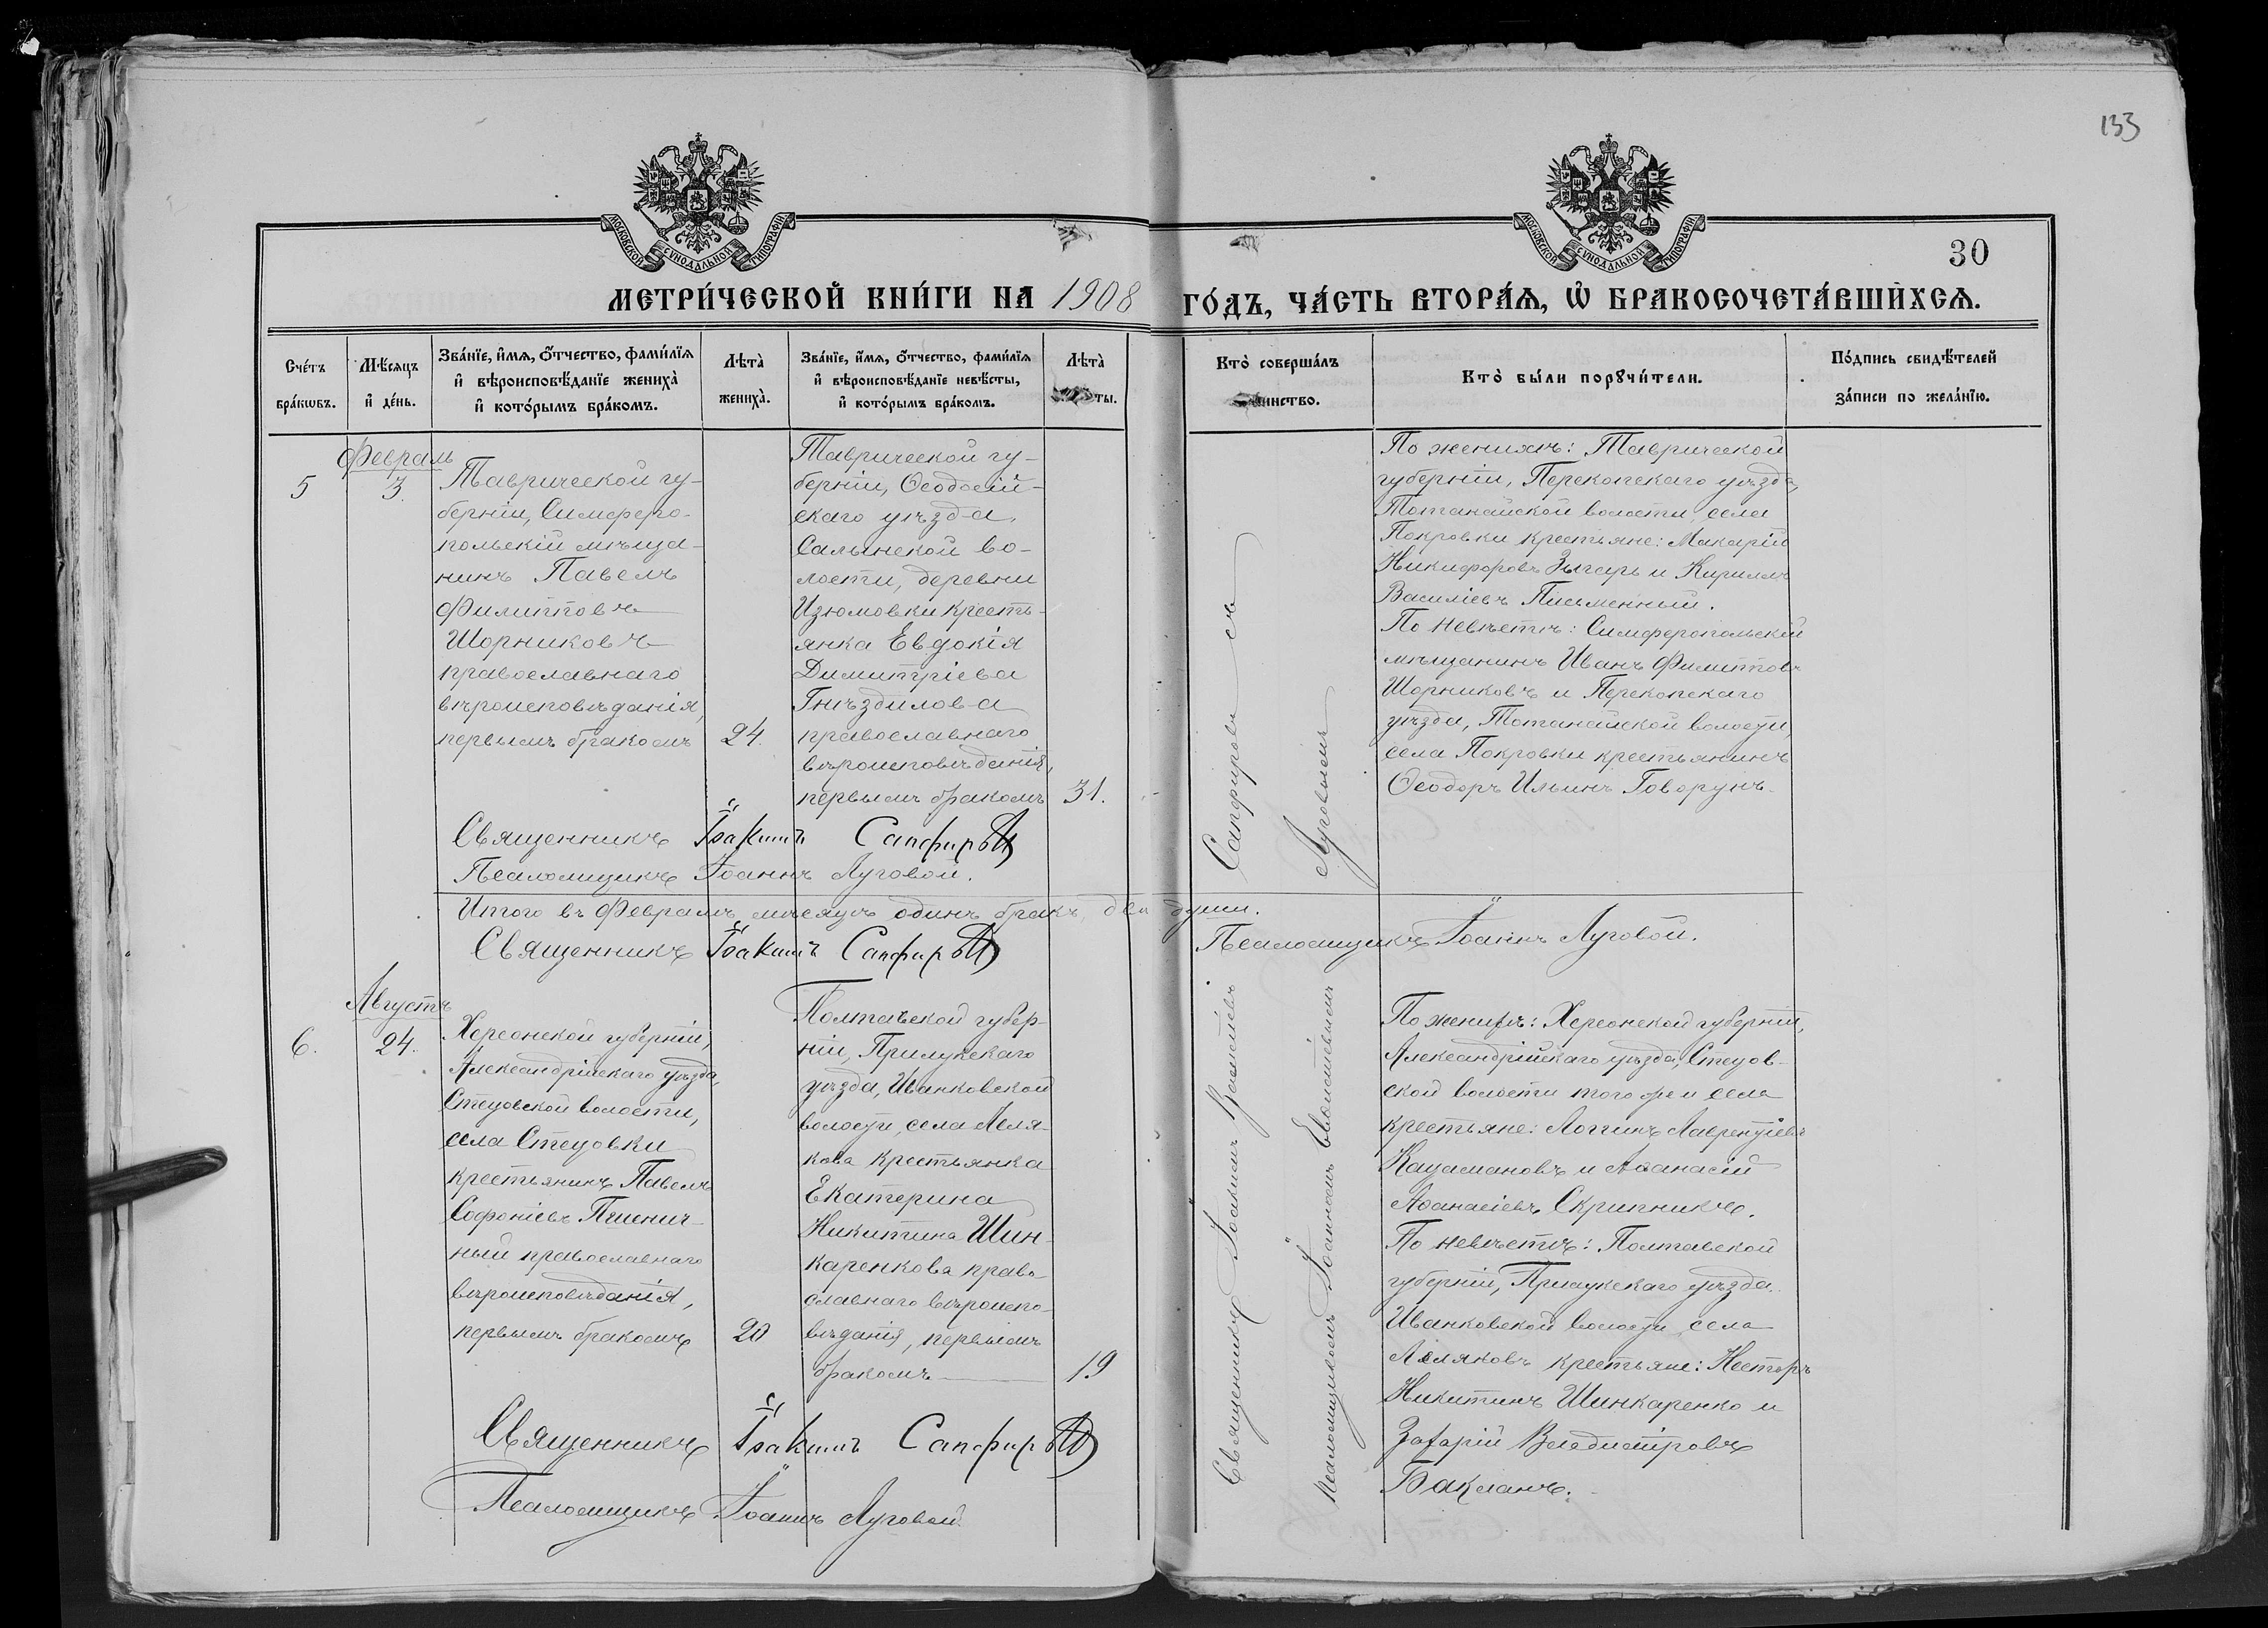 133
МОСКОВСКОЙ СѴНОДАЛЬНОЙ ТИПОГРАФІИ
МОСКОВСКОЙ СѴНОДАЛЬНОЙ ТИПОГРАФІИ
30
МЕТРИ́ЧЕСКОЙ КНИ́ГИ НА 1908 ГО́ДЪ, ЧА́СТЬ ВТОРА́Ѧ, Ѡ БРАКОСОЧЕТА́ВШИХСѦ.
Сче́тъ
бра́кѡвъ.
Мѣ́сѧцъ
и҆ де́нь.
Зва́нїе, и҆́мѧ, ѻ҆́тчество, фами́лїѧ
и҆ вѣроисповѣ́данїе жениха̀
и҆ кото́рымъ бра́комъ.
Лѣта̀
жениха̀.
Зва́нїе, и҆́мѧ, ѻ҆́тчество, фами́лїѧ
и҆ вѣроисповѣ́данїе невѣ́сты,
и҆ кото́рымъ бра́комъ.
Лѣта̀
ты.
Кто̀ соверша́лъ
инство.
Кто̀ бы́ли порꙋчи́тели.
По́дпись свидѣ́телей
за́писи по жела́нїю.
Февраль
5
3.
Таврической гу-
берніи, Симферо-
польскій мѣща-
нинъ Павелъ
Филипповъ
Шорниковъ
православнаго
вѣроисповѣданія,
первымъ бракомъ
24.
Таврической гу-
берніи, Ѳеодосій-
скаго уѣзда,
Салынской во-
лости, деревни
Изюмовки кресть-
янка Евдокія
Димитріева
Гнѣздилова
православнаго
вѣроисповѣданія,
первымъ бракомъ
31.
По женихѣ: Таврической
губерніи, Перекопскаго уѣзда,
Тотанайской волости, села
Покровки крестьяне: Макарій
Никифоровъ Зыгарь и Кириллъ
Василіевъ Письменный.
По невѣстѣ: Симферопольскій
мѣщанинъ Иванъ Филипповъ
Шорниковъ и Перекопскаго
уѣзда, Тотанайской волости,
села Покровки крестьянинъ
Ѳеодоръ Ильинъ Говорунъ.
Священникъ Іоакимъ Сапфировъ
Псаломщикъ Іоаннъ Луговой.
Итого въ Февралѣ мѣсяцѣ одинъ бракъ, два души.
Священникъ Іоакимъ Сапфировъ
Псаломщикъ Іоаннъ Луговой.
Августъ
6.
24.
Херсонской губерніи,
Александрійскаго уѣзда,
Стецовской волости,
села Стецовки
крестьянинъ Павелъ
Софоніевъ Пшенич-
ный православнаго
вѣроисповѣданія,
первымъ бракомъ
20
Полтавской губер-
ніи, Прилукскаго
уѣзда, Иванковской
волости, села Леля-
кова крестьянка
Екатерина
Никитина Шин-
каренкова право-
славнаго вѣроиспо-
вѣданія, первымъ
бракомъ
19
Священникъ Іоакимъ Сапфировъ съ
Псаломщикомъ Іоанномъ Луговымъ
По женихѣ: Херсонской губерніи,
Александрійскаго уѣзда, Стецов-
ской волости того же и села
крестьяне: Логгинъ Лаврентіевъ
Кацамановъ и Аѳанасій
Аѳанасіевъ Скрипникъ.
По невѣстѣ: Полтавской
губерніи, Прилукскаго уѣзда.
Иванковской волости, села
Леляковъ крестьяне: Несторъ
Никитинъ Шинкаренко и
Захарій Владиміровъ
Бакланъ.
Священникъ Іоакимъ Сапфировъ
Псаломщикъ Іоаннъ Луговой.